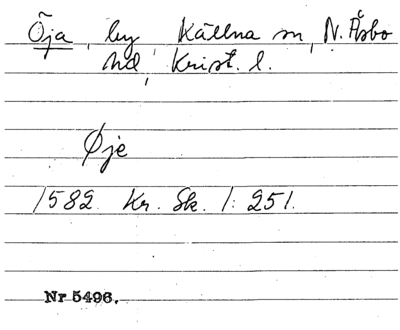 Öja, by, Källna sn, N. Åsbo
hd, Krist. l.
Øje
1582 Kr. Sk. 1: 251.
Nr 5496.